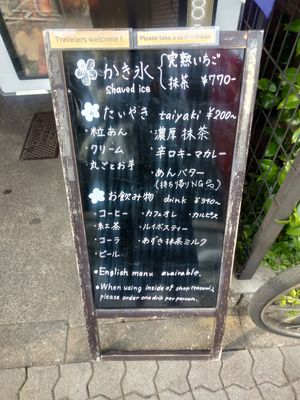 Travelers welcome!
Please take a seat outside
かき氷 完熟いちご
Shaved ice 抹茶 ¥770-
たいやき taiyaki ¥200~
・粒あん ・濃厚抹茶
・クリーム ・辛口キーマカレー
・丸ごとお芋 ・あんバター
(持ち帰りNG)
お飲み物 drink ¥340~
・コーヒー ・カフェオレ ・カルピス
・紅茶 ・ルイボスティー
・コーラ ・あずき抹茶ミルク
・ビール
●English menu avairable.
●When using inside of shop
please order one drink per person.